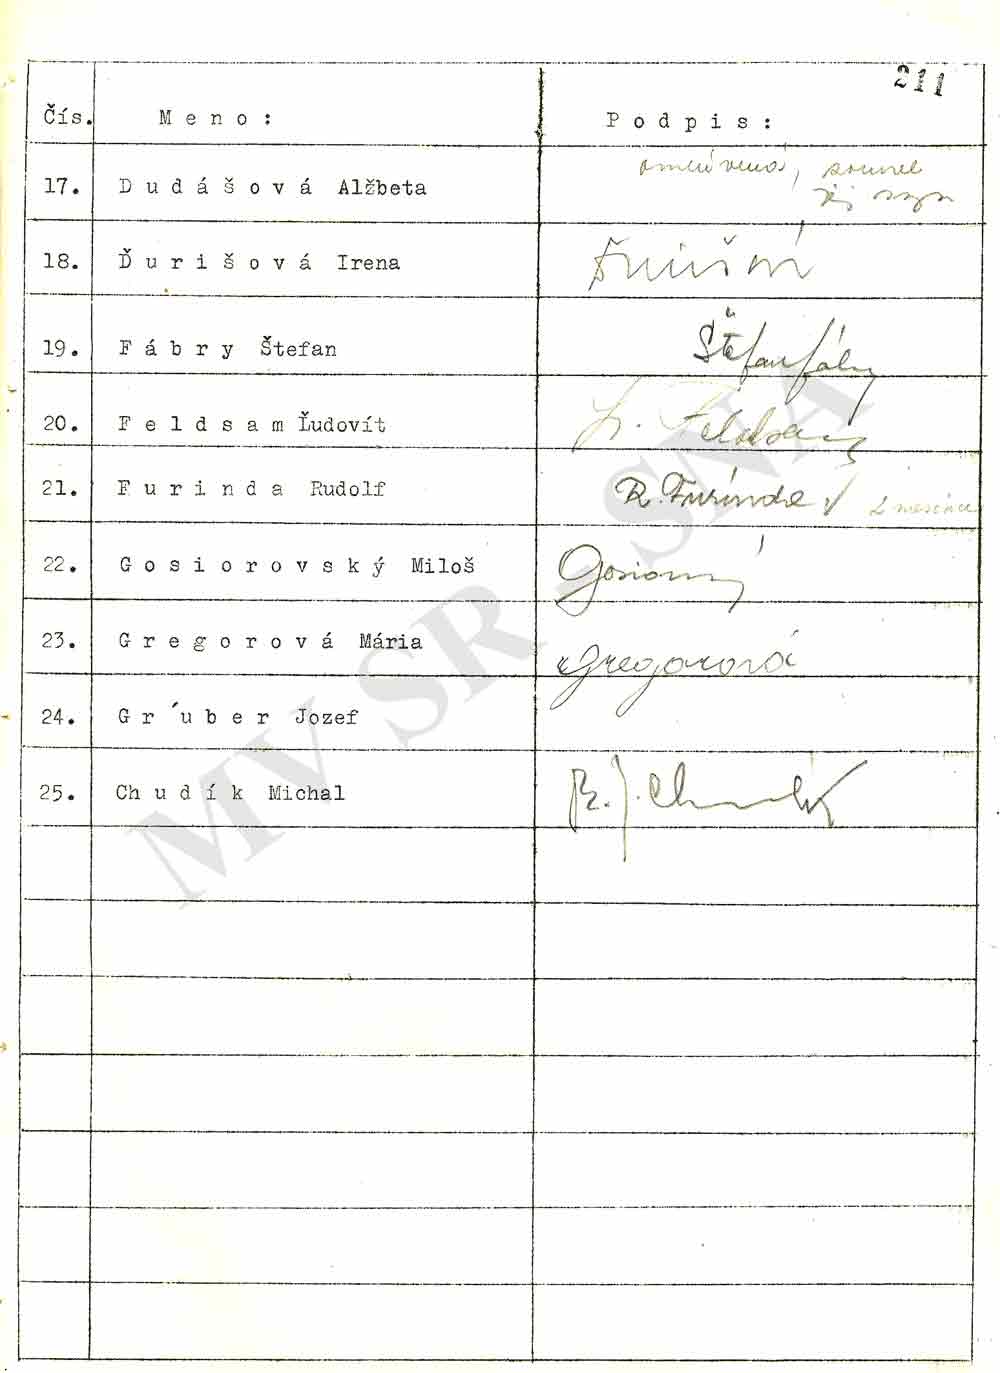 211
Čís. Meno: Podpis:
17. Dudášová Alžbeta
18. Ďurišová Irena Ďurišová
19. Fábry Štefan Štefan Fábry
20. Feldsam Ľudovít Ľ. Feldsam
21. Furinda Rudolf R. Furinda
22. Gosiorovský Miloš
23. Gregorová Mária Gregorová
24. Gr´uber Jozef
25. Chudík Michal
MV SR - SNA